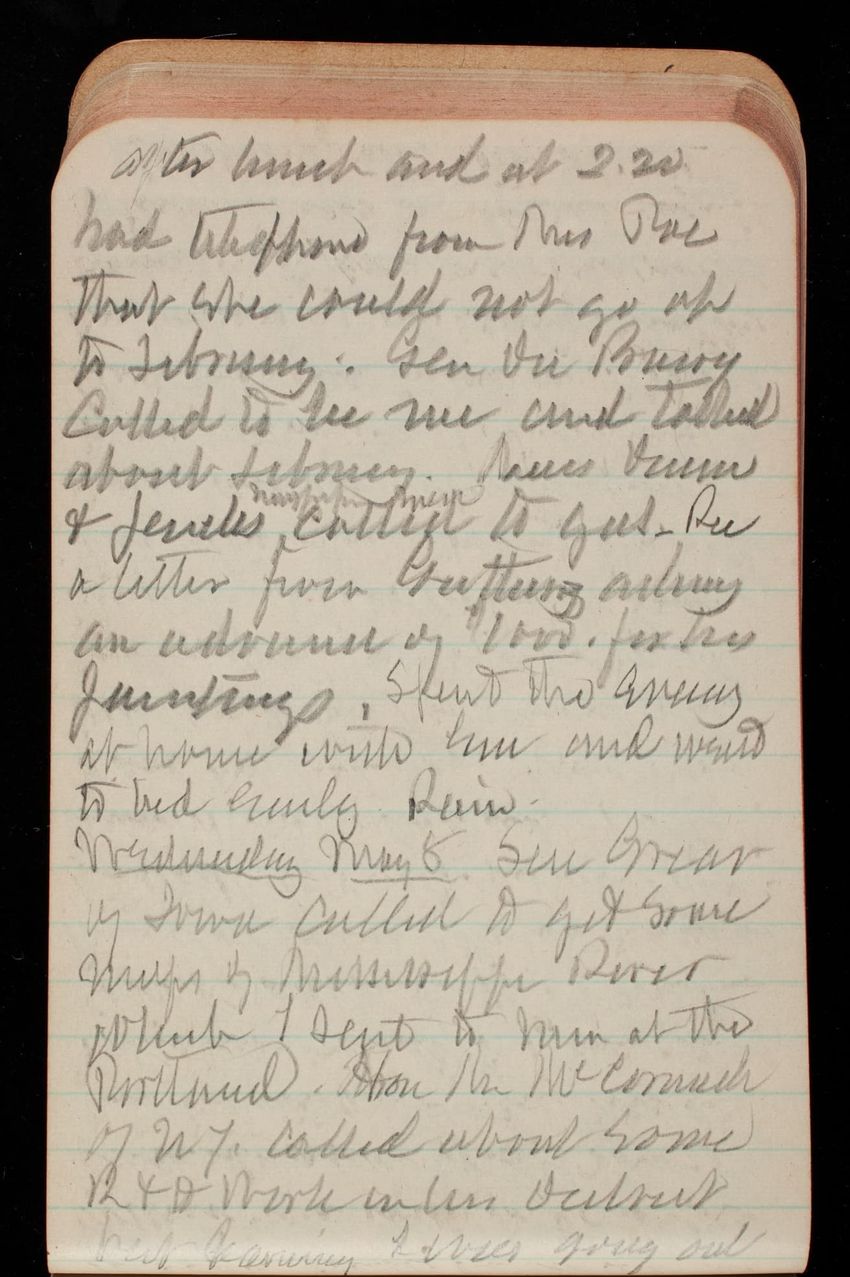 after lunch and at 2.20
had telephone from Mrs Roe
that she could not go up
to February. Gen Du Barry
Called to see me and talked
about February. Miss Dunn
newspaper men
& Jenks called to get. Rec
a letter from asking
an advance of $1000. for his
paintings, Spent the evening
at home with Em and went
to bed early Rain.
Wednesday May 5 Gen Grear
of Iowa Called to get some
maps of Mississippi River
which I sent to him at the
Portland. Hon Mr McCormick
of N.Y. Called about some
R & H Work in his District
but learning I was going out